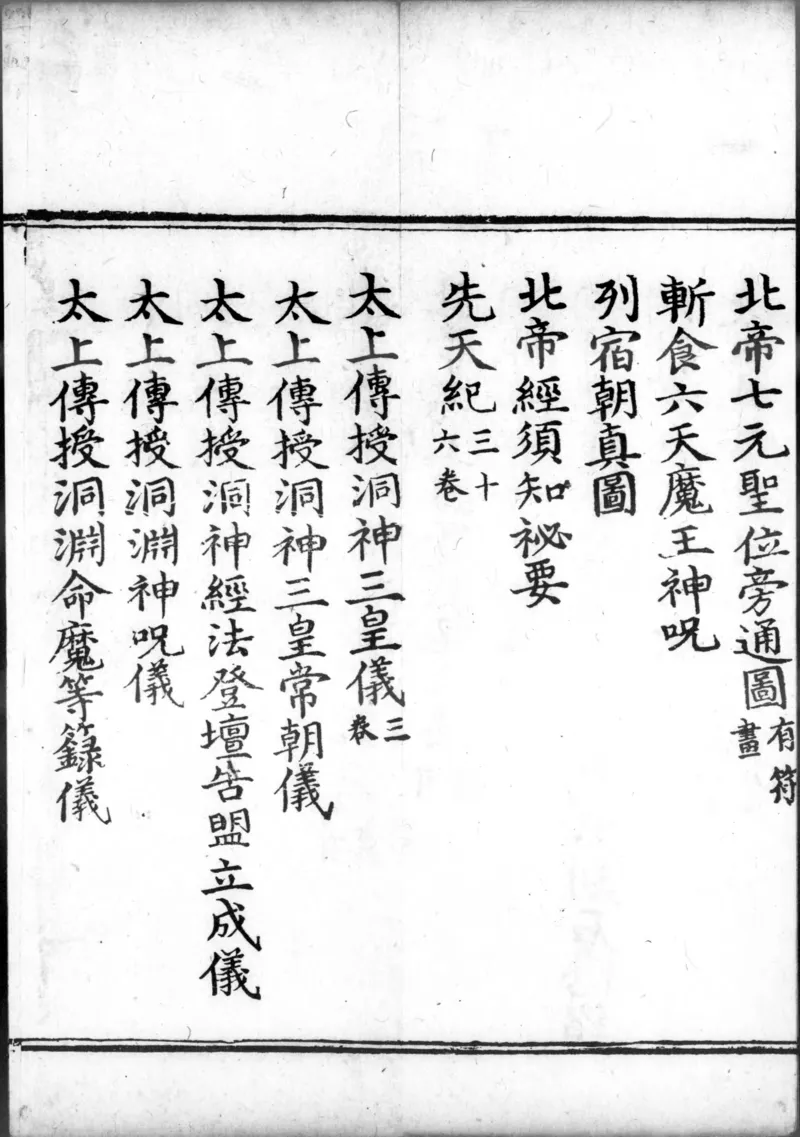 北帝七元聖位旁通圖有符畫
斬食六天魔王神呪
列宿朝真圖
北帝經須知祕要
先天紀三十六卷
太上傳授洞神三皇儀三卷
太上傳授洞神三皇常朝儀
太上傳授洞神經法登壇告盟立成儀
太上傳授洞淵神呪儀
太上傳授洞淵命魔等籙儀